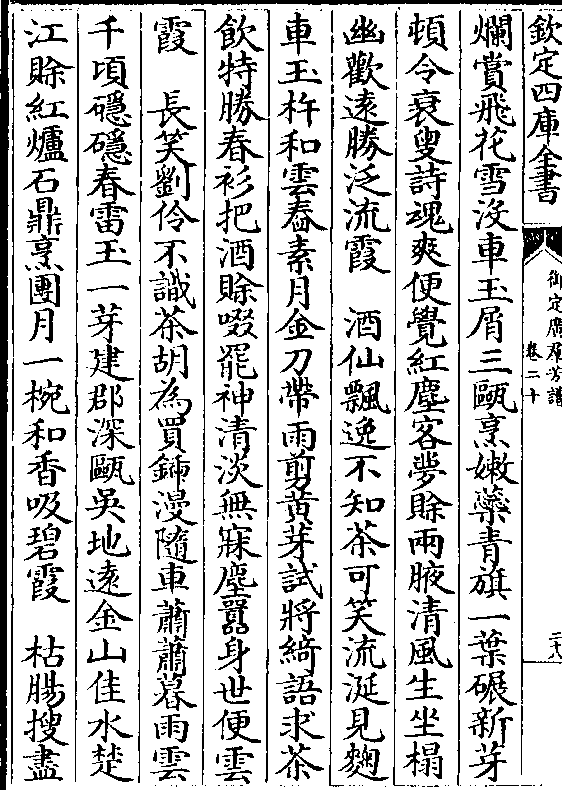 欽定四庫全書
御定廣羣芳譜
卷二十
二十八
爛賞飛花雪沒車玉屑三甌烹嫩蘂青旗一葉碾新芽
頓令衰叟詩魂爽便覺紅塵客夢賖兩腋清風生坐榻
幽歡遠勝泛流霞　酒仙飄逸不知茶可笑流涎見麴
車玉杵和雲舂素月金刀帶雨剪黄芽試將綺語求茶
飲特勝春衫把酒賖啜罷神清淡無寐塵囂身世便雲
霞　長笑劉伶不識茶胡為買鍤漫隨車蕭蕭暮雨雲
千頃礉礉春雷玉一芽建郡深甌吳地遠金山佳水楚
江賖紅爐石鼎烹團月一椀和香吸碧霞　枯腸搜盡